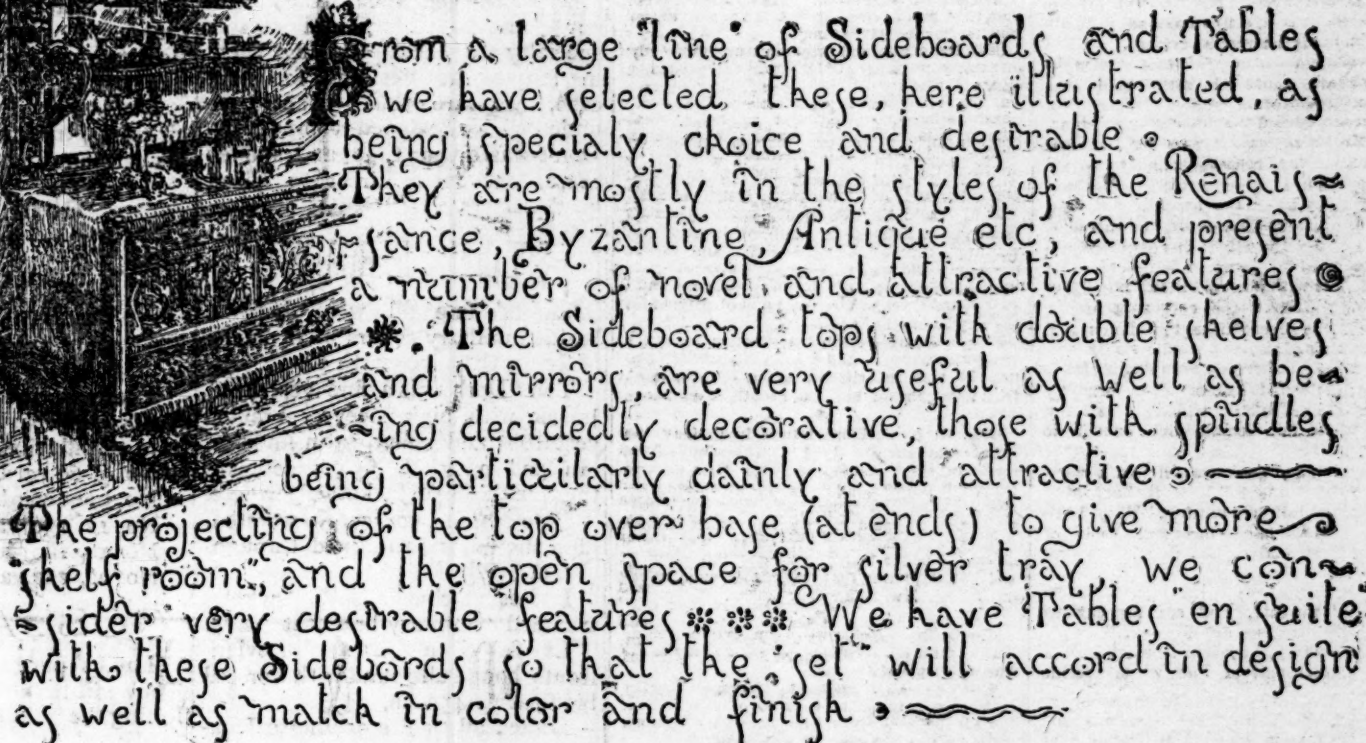 From a large "line" of Sideboards and Tables
we have selected these, here illustrated, as
being specialy choice and desirable.
They are mostly in the styles of the Renais-
-sance, Byzantine, Antique etc, and present
a number of novel and attractive features.
The Sideboard tops with double shelves
and mirrors, are very useful as well as be-
-ing decidedly decorative, those with spindles
being particularly dainly and attractive.
The projecting of the top over base (at ends) to give more
"shelf room", and the open space for silver tray, we con-
-sider very desirable features *** We have Tables "en suite"
with these Sidebords so that the "set" will accord in design
as well as match in color and finish.